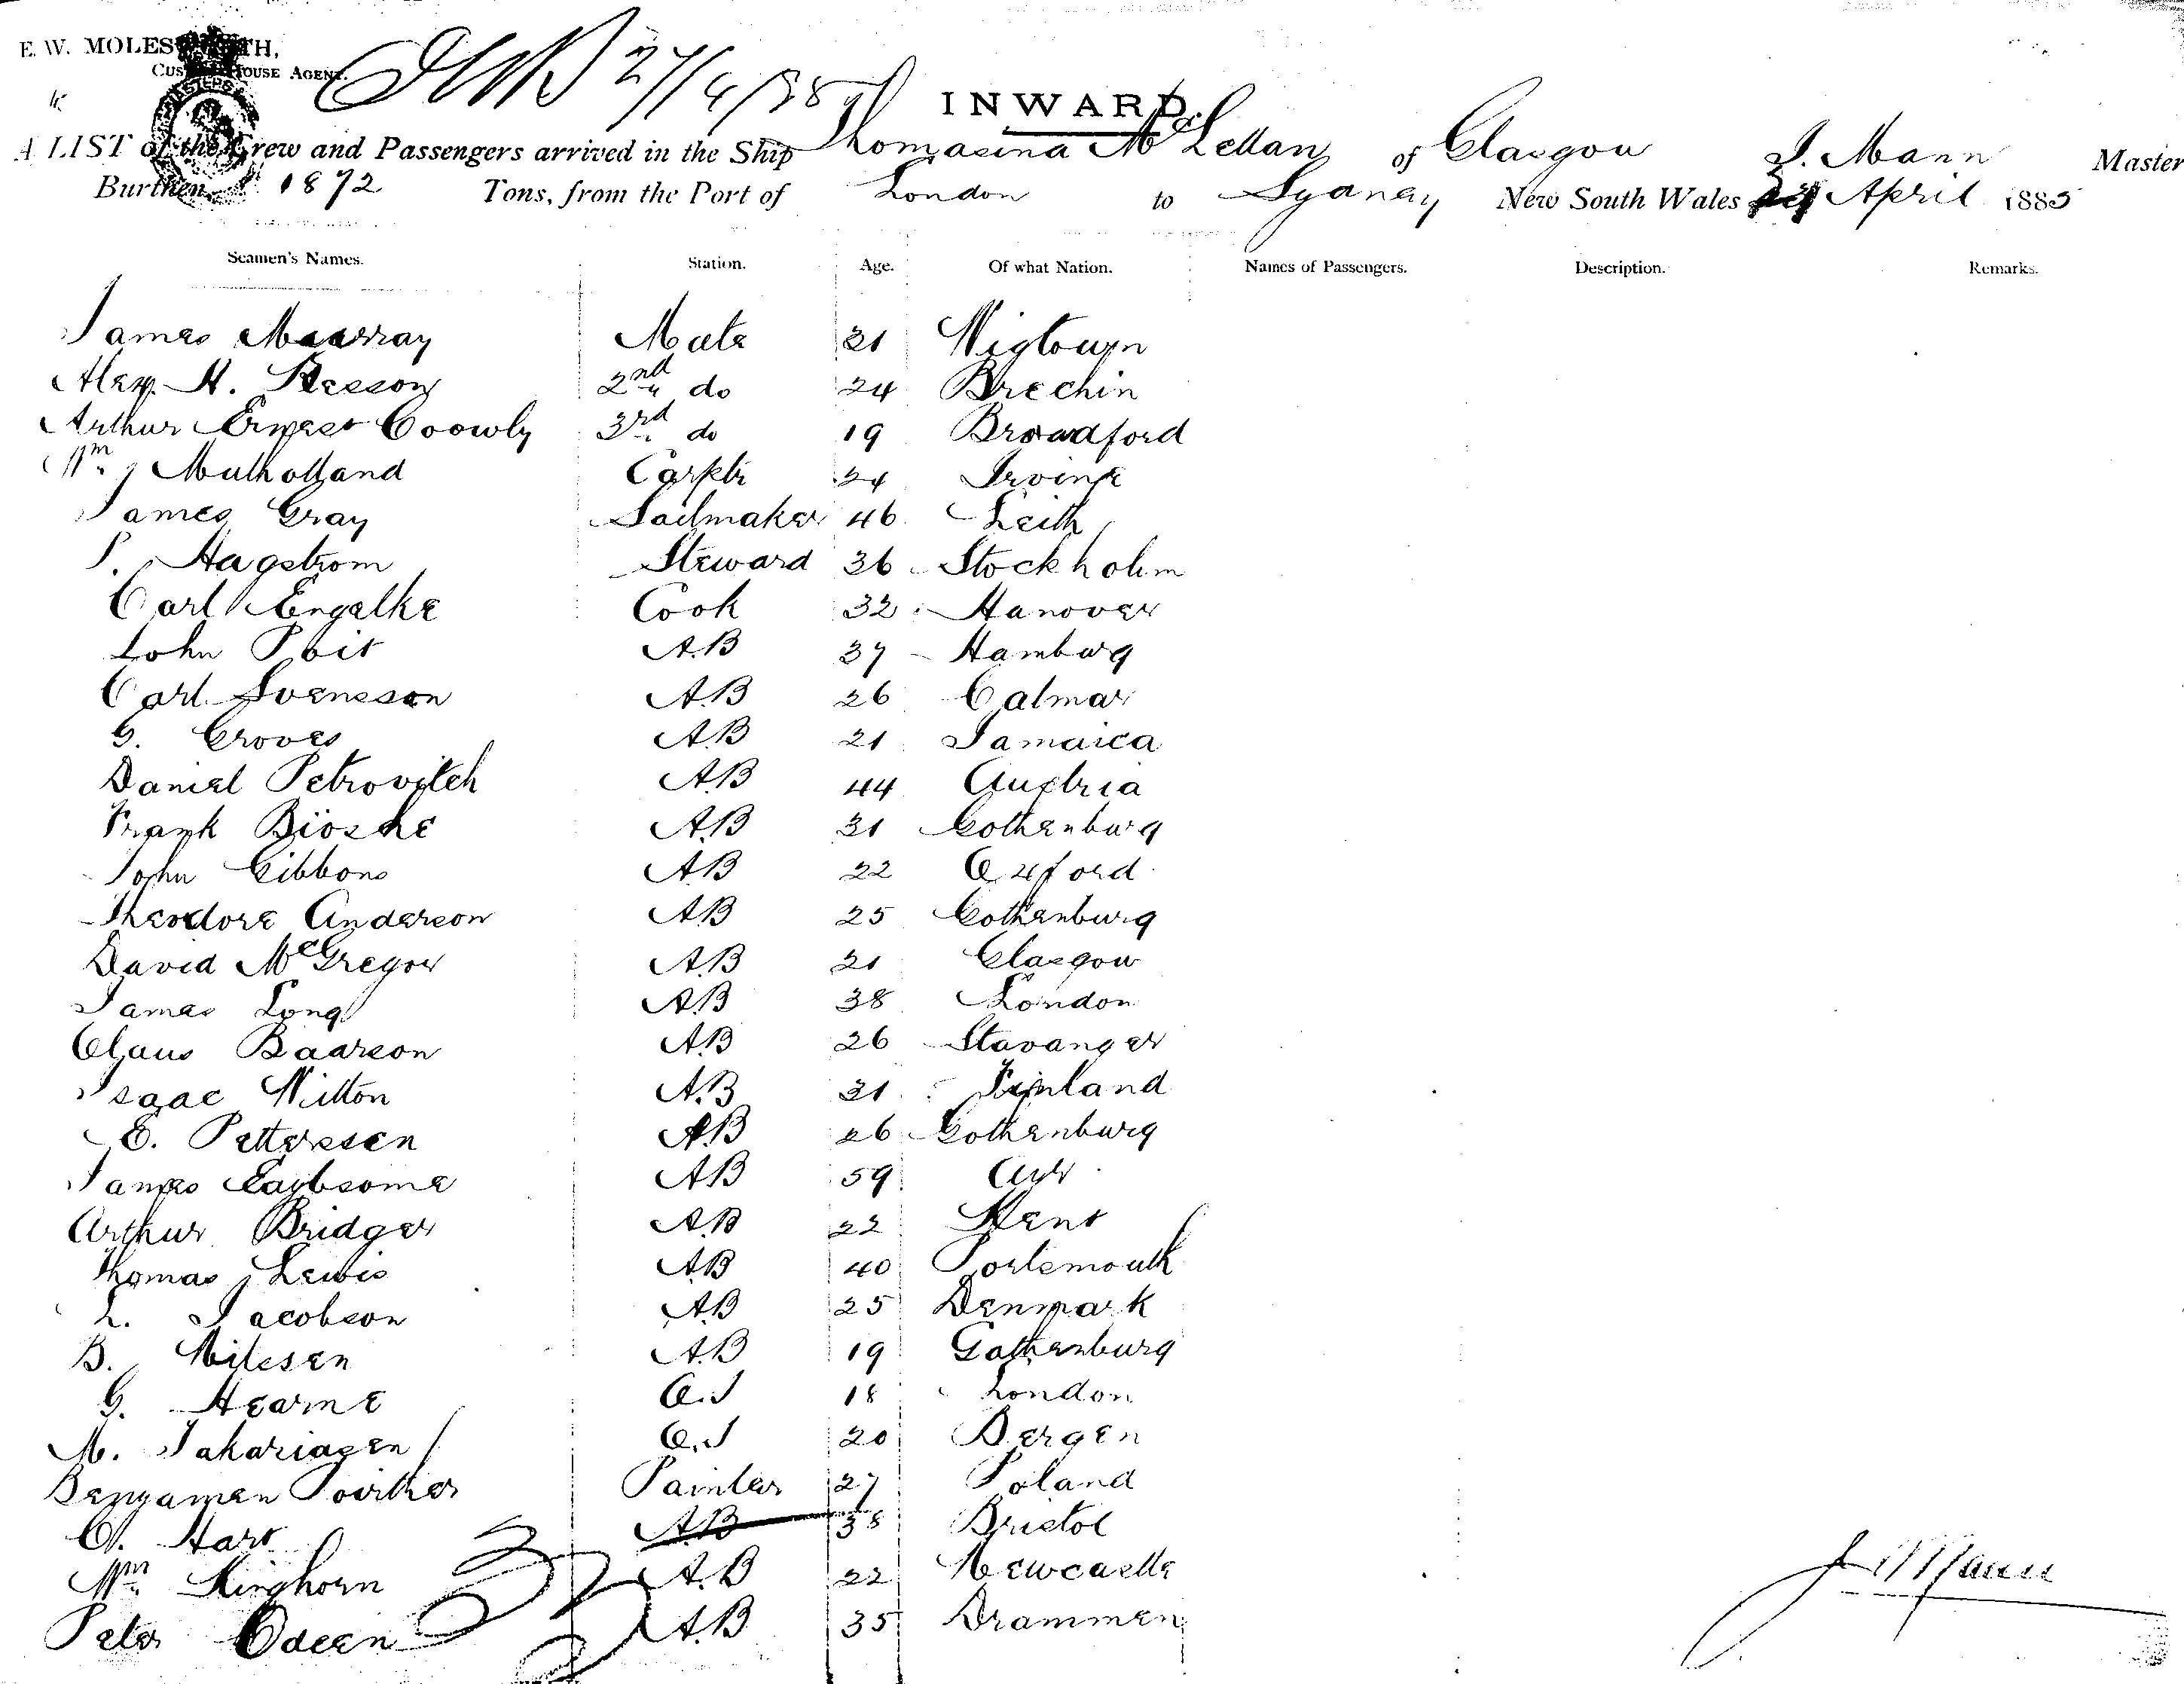 E. W. MOLESWORTH,
CUSTOM HOUSE AGENT.
27/4/85
INWARD.
A LIST of the Crew and Passengers arrived in the Ship Thomasina McLellan of Glasgow J. Mann Master
Burthen 1872 Tons, from the Port of London to Sydney New South Wales April 1885
Seamen's Names. Station. Age. Of what Nation. Names of Passengers. Description. Remarks.
James Murray Mate 21 Wigtown
Alex. H. 2nd do 24 Brechin
Arthur Ernest Coowly 3rd do 19 Broadford
Wm Mulholland Carptr 24 Irvine
James Gray Sailmaker 46 Leith
P. Hagstrom Steward 36 Stockholm
Carl Engelke Cook 32 Hanover
John Poit A.B 37 Hamburg
Carl Svensson A.B 26 Calmar
G. Groves A.B 21 Jamaica
Daniel Petrovitch A.B 44 Austria
Frank A.B 31 Gothenburg
John Gibbons A.B 22 Oxford
Theodore Anderson A.B 25 Gothenburg
David McGregor A.B 21 Glasgow
James Long A.B 38 London
Claus Baarson A.B 26 Stavanger
Isaac Witton A.B 31 Finland
E. Pettersen A.B 26 Gothenburg
James A.B 59 Ayr
Arthur Bridger A.B 22 Kent
Thomas Lewis A.B 40 Portsmouth
L. Jacobson A.B 25 Denmark
B. Nilesen A.B 19 Gothenburg
G. Hearne O.S 18 London
M. Jakariasen O.S 20 Bergen
Benjamen Painter 27 Poland
C. Hart A.B 38 Bristol
Wm Kinghorn A.B 22 Newcastle
Peter Odeen A.B 35 Drammen
J Mann